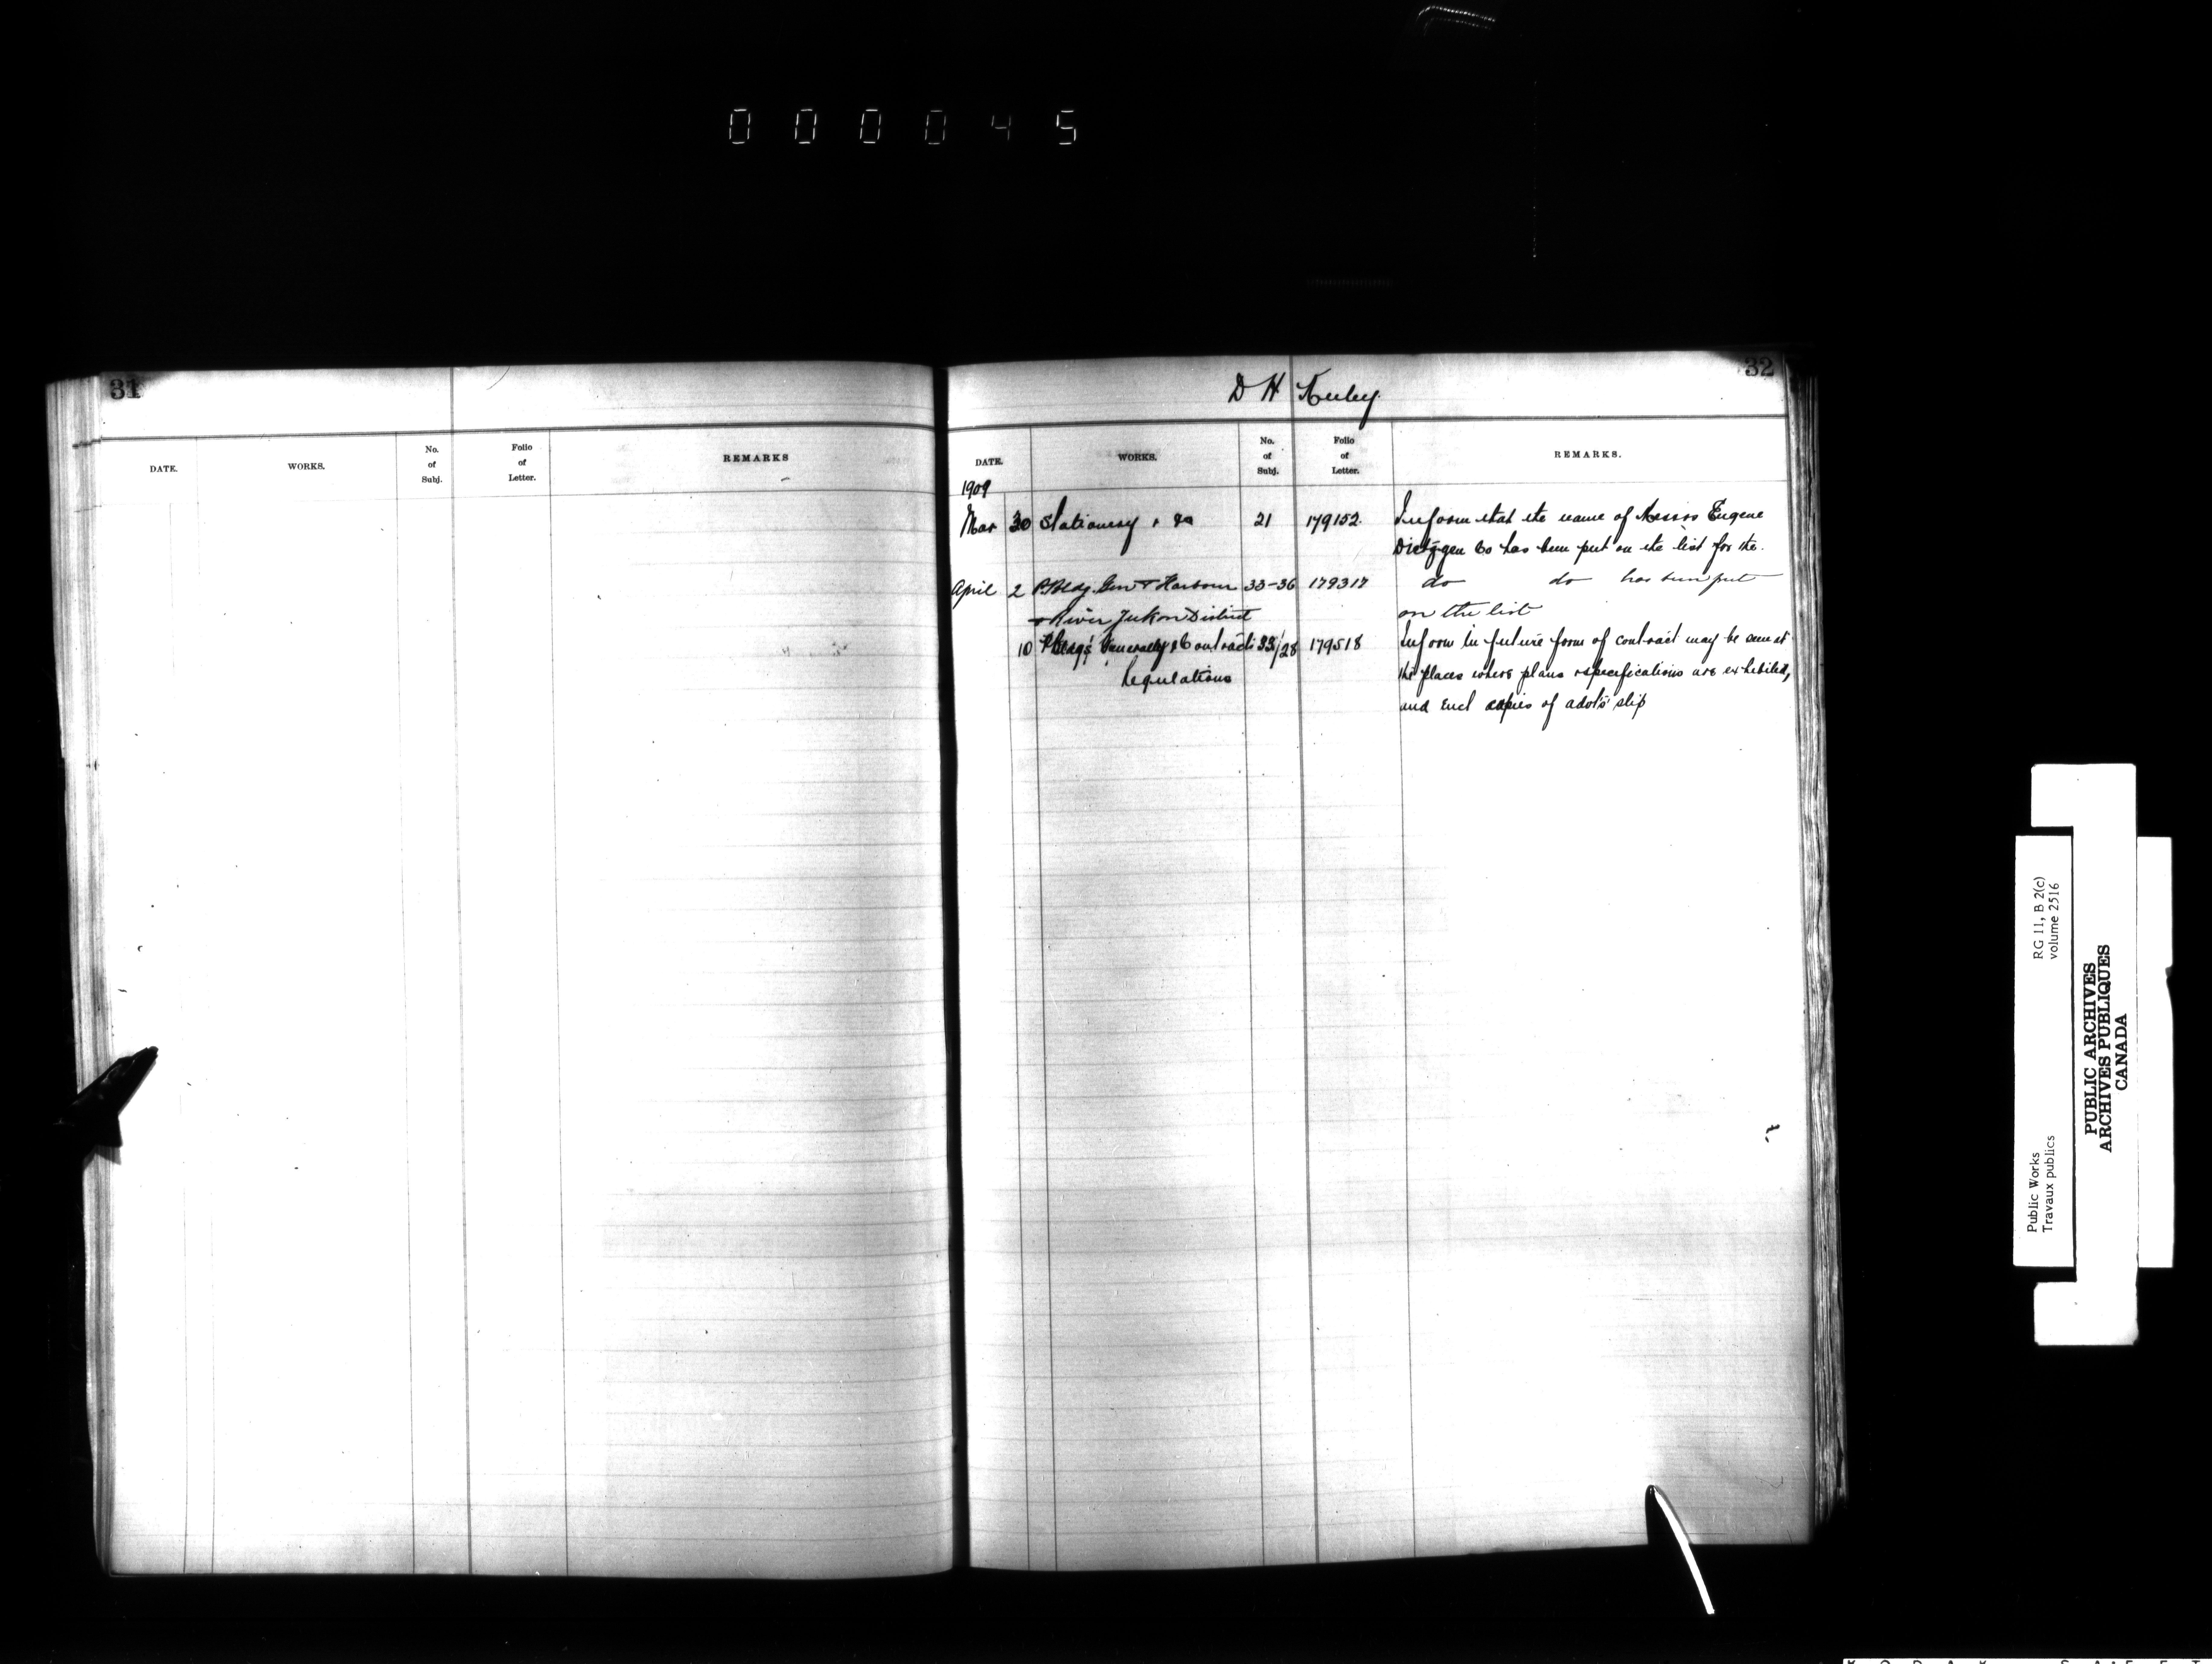 000045
31
DATE. WORKS. No. of Subj. Folio of Letter. REMARKS
32
D H
DATE. WORKS. No. of Subj. Folio of Letter. REMARKS.
1909
Mar 30 Stationery 21 179152 Inform that the name of Messrs Eugene
Dietzgen Co has been put on the list for the.
April 2 P. Bldg. Gen & Harbour 33-36 179317 do do has been put
& River Yukon District on the list
10 P Bldgs Generally & Contract 33/28 179518 Inform in future form of contract may be seen at
Regulations the places where plans & specifications are exhibited,
and Encl copies of advt's slip
Public Works
Travaux publics
RG 11, B 2(c)
volume 2516
PUBLIC ARCHIVES
ARCHIVES PUBLIQUES
CANADA